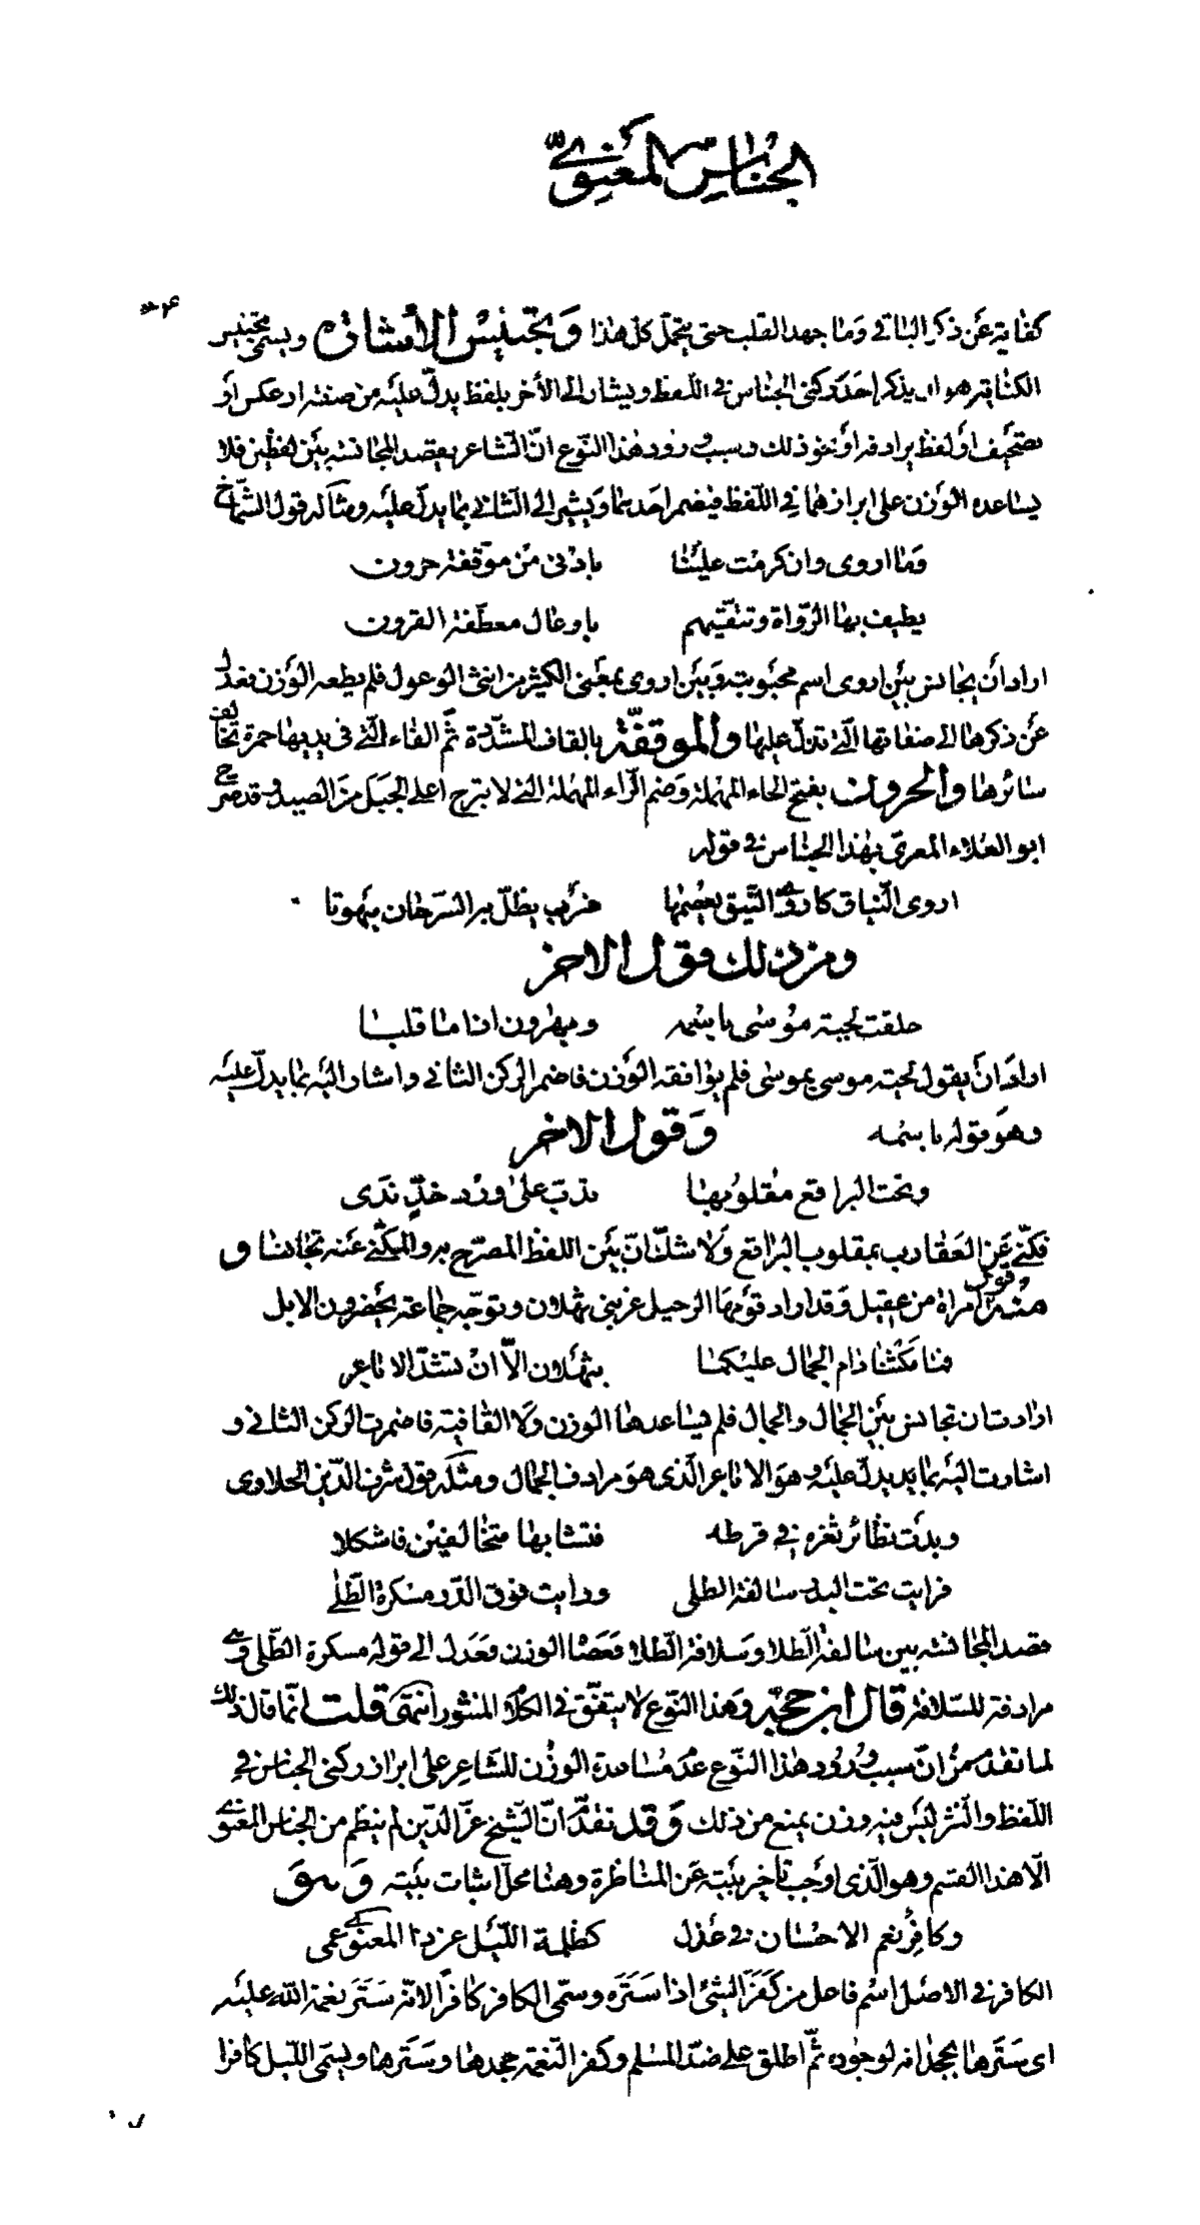 الجناس المعنوي
٢٤
كفاية عن ذكر الباقي وما جهد القلب حتى يحمل كل هذا وتجنيس الأشارة ويسمى تجنيس
الكناية هو ان يذكر احد ركني الجناس في اللفظ ويشار الى الأخر بلفظ يدل عليه من صفة او عكس او
تصحيف او لفظ يرادفه او نحو ذلك وسبب ورود هذا النوع ان الشاعر يقصد المجانسة بين لفظين فلا
يساعده الوزن على ابرازهما في اللفظ فيضمر احدهما ويشير الى الثاني بما يدل عليه ومثاله قول الشماخ
وما اروى وان كرمت علينا بادنى من موقفة حرون
يطيف بها الرواة وتتقيهم باوعال معطفة القرون
اراد أن يجانس بين اروى اسم محبوبته وبين اروى بمعنى الكثير من انثى الوعول فلم يطعه الوزن فعدل
عن ذكرها الى صفاتها التي تدل عليها والموقفة بالقاف المشددة ثم الفاء التي في يديها حمرة تخالف
سائرها والحرون بفتح الحاء المهملة وضم الراء المهملة التي لا تبرح اعلى الجبل من الصيد وقد صرح
ابو العلاء المعري بهذا الجناس في قوله
اروى النياق كاروى النيق يعصمها ضرب يظل به السرحان مبهوتا
ومن ذلك قول الاخر
حلقت لحية موسى باسمه وبهرون اذا ما قلبا
اراد أن يقول لحية موسى بموسى فلم يوافقه الوزن فاضمر الركن الثاني واشار اليه بما يدل عليه
وهو قوله باسمه وقول الاخر
وتحت البراقع مقلوبها تدب على ورد خد ندى
فكنى عن العقارب بمقلوب البراقع ولا شك ان بين اللفظ المصرح به والمكنى عنه تجانسا و
منه قول امراة من عقيل وقد اراد قومها الرحيل عن بني ثهلان وتوجه جماعة يحضرون الابل
فما مكثنا دام الجمال عليكما بثهلان الا ان تشد الاباعر
ارادت ان تجانس بين الجمال والجمال فلم يساعدها الوزن ولا القافية فاضمرت الركن الثاني و
اشارت اليه بما يدل عليه وهو الاباعر الذي هو مرادف الجمال ومثله قول شرف الدين الحلاوى
وبدت نظائر ثغره في قرطه فتشابها متخالفين فاشكلا
فرايت تحت البدر سالفة الطلى ورايت فوق الدر مسكرة الطلى
قصد المجانسة بين سالفة الطلا وسلافة الطلا فعصا الوزن فعدل الى قوله مسكرة الطلى وهي
مرادفة للسلافة قال ابن حجة وهذا النوع لا يتفق في الكلام المنثور انتهى قلت انما قال ذلك
لما تقدم من ان سبب ورود هذا النوع عدم مساعدة الوزن للشاعر على ابراز ركني الجناس في
اللفظ والنثر ليس فيه وزن يمنع من ذلك وقد تقدم ان الشيخ عز الدين لم ينظم من الجناس المعنوي
الا هذا القسم وهو الذي اوجب تاخير بيته عن المناظرة وهنا محل اثبات بيته وهو
وكافر نعم الاحسان في عذل كظلمة الليل عن ذا المعنوي عمى
الكافر في الاصل اسم فاعل من كفر الشئ اذا ستره وسمى الكافر كافرا لانه ستر نعمة الله عليه
اى سترها بجحدانه لوجوده ثم اطلق على ضد المسلم وكفر النعمة جحدها وسترها ويسمى الليل كافرا